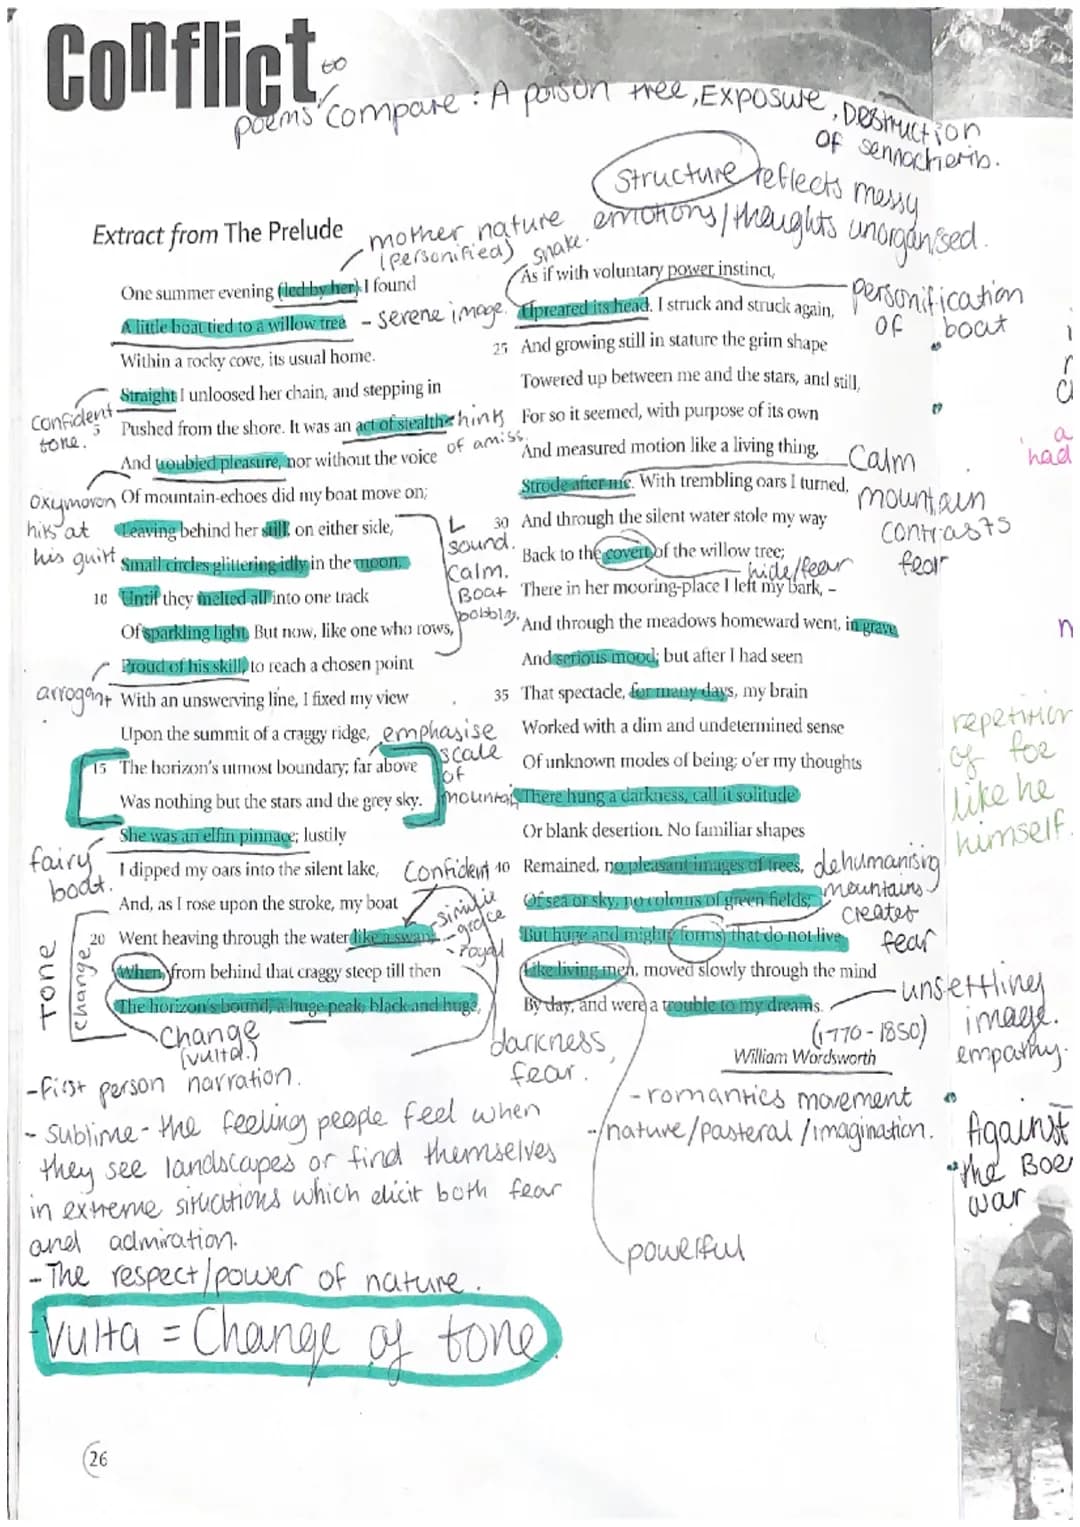 Conflict
poems to compare: A poison tree, Exposure, Destruction
of sennacherib.
Structure reflects messy
emotions/thoughts unorganised.
Extract from The Prelude
mother nature
(personified)
snake.
One summer evening (led by her) I found
A little boat tied to a willow tree
- serene image.
Within a rocky cove, its usual home.
Straight I unloosed her chain, and stepping in
confident
tone.
5 Pushed from the shore. It was an act of stealth
hints
of amiss.
And troubled pleasure, nor without the voice
oxymoron
hits at
his guirt
Of mountain-echoes did my boat move on;
Leaving behind her still, on either side,
Small circles glittering idly in the moon,
10 Until they melted all into one track
Of sparkling light. But now, like one who rows,
sound.
Calm.
Boat
bobbing.
Proud of his skill, to reach a chosen point
arrogant
With an unswerving line, I fixed my view
Upon the summit of a craggy ridge,
emphasise
scale
of
mountain
15 The horizon's utmost boundary; far above
Was nothing but the stars and the grey sky.
She was an elfin pinnace; lustily
fairy
boat.
I dipped my oars into the silent lake,
Confident
And, as I rose upon the stroke, my boat
- simile
- grace
- royal
20 Went heaving through the water like a swan;
When, from behind that craggy steep till then
The horizon's bound, a huge peak, black and huge,
TONE
change
Change
(vulta.)
darkness,
fear.
As if with voluntary power instinct,
Upreared its head. I struck and struck again,
personification
of boat
25 And growing still in stature the grim shape
Towered up between me and the stars, and still,
For so it seemed, with purpose of its own
And measured motion like a living thing,
Strode after me. With trembling oars I turned,
Calm
mountain
contrasts
fear
30 And through the silent water stole my way
Back to the covert of the willow tree;
hide/fear
There in her mooring-place I left my bark, -
And through the meadows homeward went, in grave
And serious mood; but after I had seen
35 That spectacle, for many days, my brain
Worked with a dim and undetermined sense
Of unknown modes of being; o'er my thoughts
There hung a darkness, call it solitude
Or blank desertion. No familiar shapes
40 Remained, no pleasant images of trees,
Of sea or sky, no colours of green fields;
But huge and mighty forms, that do not live
Like living men, moved slowly through the mind
By day, and were a trouble to my dreams.
dehumanising
mountains
creates
fear
unsettling
image.
empathy.
(1770-1850)
William Wordsworth
- romantics movement
- nature/pasteral/imagination.
powerful
- first person narration.
- sublime - the feeling people feel when
they see landscapes or find themselves
in extreme situations which elicit both fear
and admiration.
- The respect/power of nature.
- Vulta = Change of tone
26
a
had
repetition
of foe
like he
himself.
Against
the Boer
war